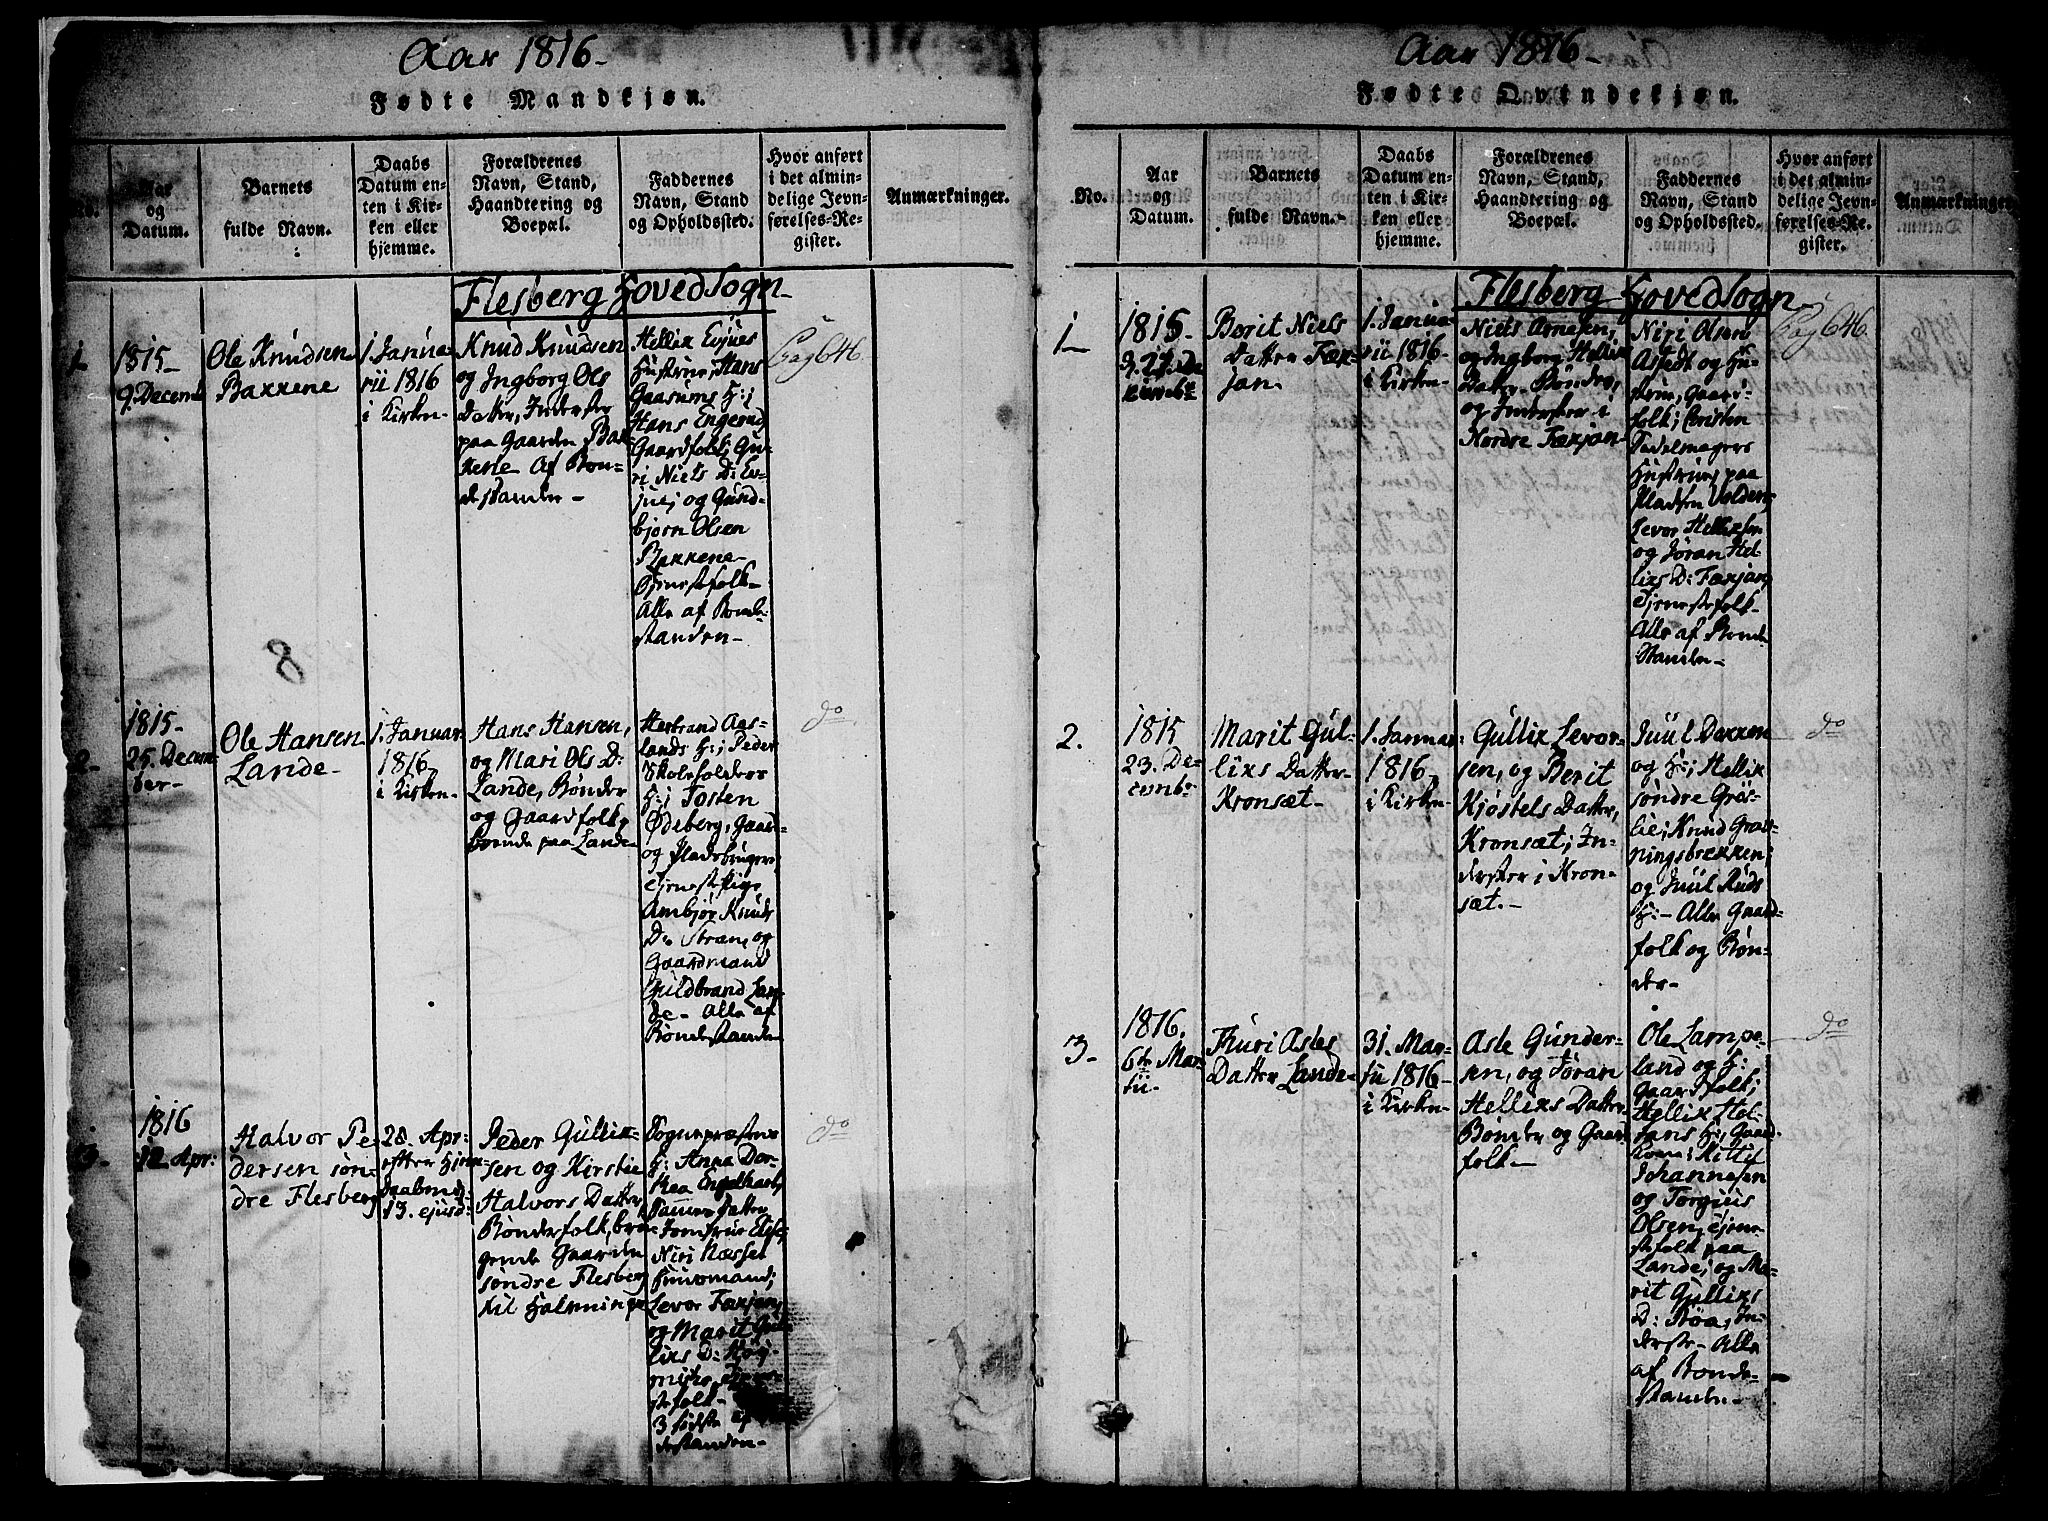 Aar 1816-
Fødte Mandkjøn.
No.
Aar
og
Datum.
Barnets
fulde Navn.
Daabs
Datum en-
ten i Kir-
ken eller
hjemme.
Forældrenes
Navn, Stand,
Haandtering og
Boepæl.
Faddernes
Navn, Stand
og Opholdssted.
Hvor anført
i det almin-
delige Jevn-
førelses-Re-
gister.
Anmærkninger.
Flesberg Hovedsogn-
1.
1815-
9. Decemb
Ole Knudsen
Bakkene
1. Janua-
rii 1816
i Kirken-
Knud Knudsen
og Ingborg Ols
Datter, Inderster
paa Gaarden Bak-
kene Af Bon-
destanden-
Hellik Evjues
Hustrue, Hans
Gaasums H:;
Hans Engerud
Gaardfolk; Gu-
ri Niels D: Ev-
jue; og Gund-
bjørn Olsen
Bakkene-
Tjenestefolk-
Alle af Bonde-
standen-
Pag 646.
8
2-
1815-
25. Decem-
ber-
Ole Hansen
Lande-
1. Januar
1816-
i Kirken-
Hans Hansen,
og Mari Ols D:
Lande, Bønder
og Gaardfolk,
boende paa Lande-
Herbrand Aas-
lands H:; Peder
Skoleholders
H:; Tosten
Ødeberg, Gaard-
og Pladsbrugere,
Tjenestepige
Ambjør Knuds
D: Stran, og
Gaardmand
Guldbrand Lan-
de- Alle af
Bondestanden-
do
3-
1816
12 Apr:
Halvor Pe-
dersen søn-
dre Flesberg
28. Apr:
efter Hjem-
medaaben
13. ejusd:
Peder Gullik-
sen og Kirstie
Halvors Datter,
Bønderfolk, bru-
gende Gaarden
søndre Flesberg
til Halvninge
Sognepræstens
H: Anna Dor-
thea Engelhart,
Niri Næsset
Huusmand;
Levor Faxjan,
og Marit Gul-
liks D:
-stefolk-
3 sidste af
-derstanden-
do
Aar 1816-
Fødte Qvindekjøn.
No.
Aar
og
Datum.
Barnets
fulde Navn.
Daabs
Datum en-
ten i Kir-
ken eller
hjemme.
Forældrenes
Navn, Stand,
Haandtering og
Boepæl.
Faddernes
Navn, Stand
og Opholdssted.
Hvor anført
i det almin-
delige Jevn-
førelses-Re-
gister.
Anmærkninger.
Flesberg Hovedsogn-
1-
1815-
Berit Niels
Datter Fax-
jan-
1. Janua-
rii 1816-
i Kirken-
Niels Arnesen,
og Ingborg Hellix
Datter- Bønder,
og Inderster i
Nordre Faxjan-
Niri Olsen
Alstedt og Hu-
strue, Gaard-
folk; Christen
Hustrue, paa
Pladsen Volden;
Levor Helliksen
og Jøran Hel-
liks D: Faxjan,
Tjenestefolk-
Alle af Bonde-
standen-
Pag 646.
2.
1815
23. De-
cemb:
Marit Gul-
liks Datter
Kronsæt-
1. Januar
1816-
i Kirken-
Gullik Levor-
sen, og Berit
Kjøstels Datter,
Kronsæt; In-
derster i Kron-
sæt.-
Juul Dokken
og H:; Hellik
søndre Grøs-
lie; Knud Grav-
ningsbrækken;
og Juul Ruds
H:- Alle Gaard-
folk og Bøn-
der-
do
3-
1816.
6te Mar-
tii-
Thuri Asles
Datter Lande-
31. Mar-
tii 1816-
i Kirken-
Asle Gunder-
sen, og Jøran
Helliks Datter
Bønder og Gaard-
folk-
Ole Lampe-
land og H:
Gaardfolk;
Hellik Hol-
tans H:, Gaard-
kone; Kittil
Johannesen
og Torgius
Olsen, Tjene-
stefolk paa
Lande; og Ma-
rit Gulliks
D: Røa, In-
derste- Alle
af Bonde-
standen-
do